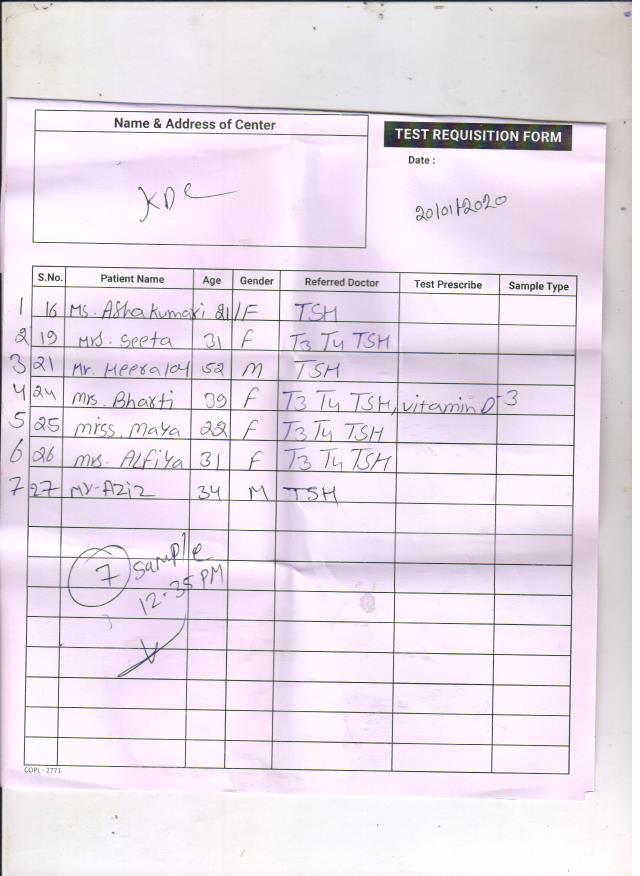 Name & Address of Center
TEST REQUISITION FORM
Date :
KDC
20/01/2020
S.No. Patient Name Age Gender Referred Doctor Test Prescribe Sample Type
1 16 Ms. Asha kumari 21/F TSH
2 19 Mrs. Seeta 31 F T3 T4 TSH
3 21 Mr. Heeralal 52 M TSH
4 24 Mrs. Bharti 39 F T3 T4 TSH, vitamin D-3
5 25 miss. Maya 22 F T3 T4 TSH
6 26 mrs. Alfiya 31 F T3 T4 TSH
7 27 Mr. Aziz 34 M TSH
7 Sample
12-35 PM
COPL - 2771